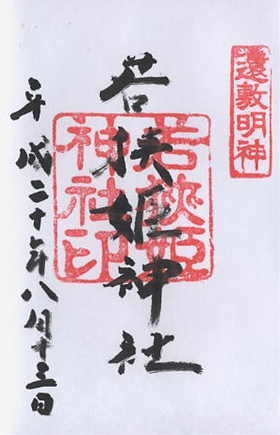 遠敷明神
若狭姫神社
若狹姫
神社印
平成二十年八月十三日